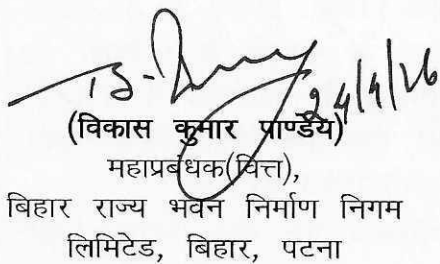 24/4/26
(विकास कुमार पाण्डेय)
महाप्रबंधक(वित्त),
बिहार राज्य भवन निर्माण निगम
लिमिटेड, बिहार, पटना